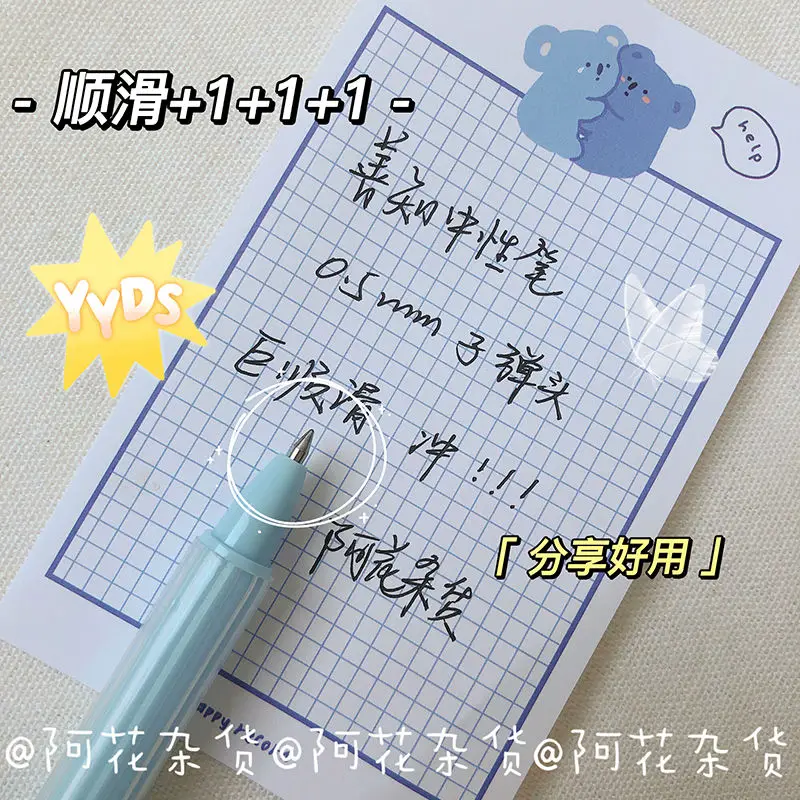 - 顺滑+1+1+1 -
help
善知中性笔
YYDS
0.5mm 子弹头
巨顺滑 冲!!!
「分享好用」
阿花杂货
@阿花杂货@阿花杂货@阿花杂货